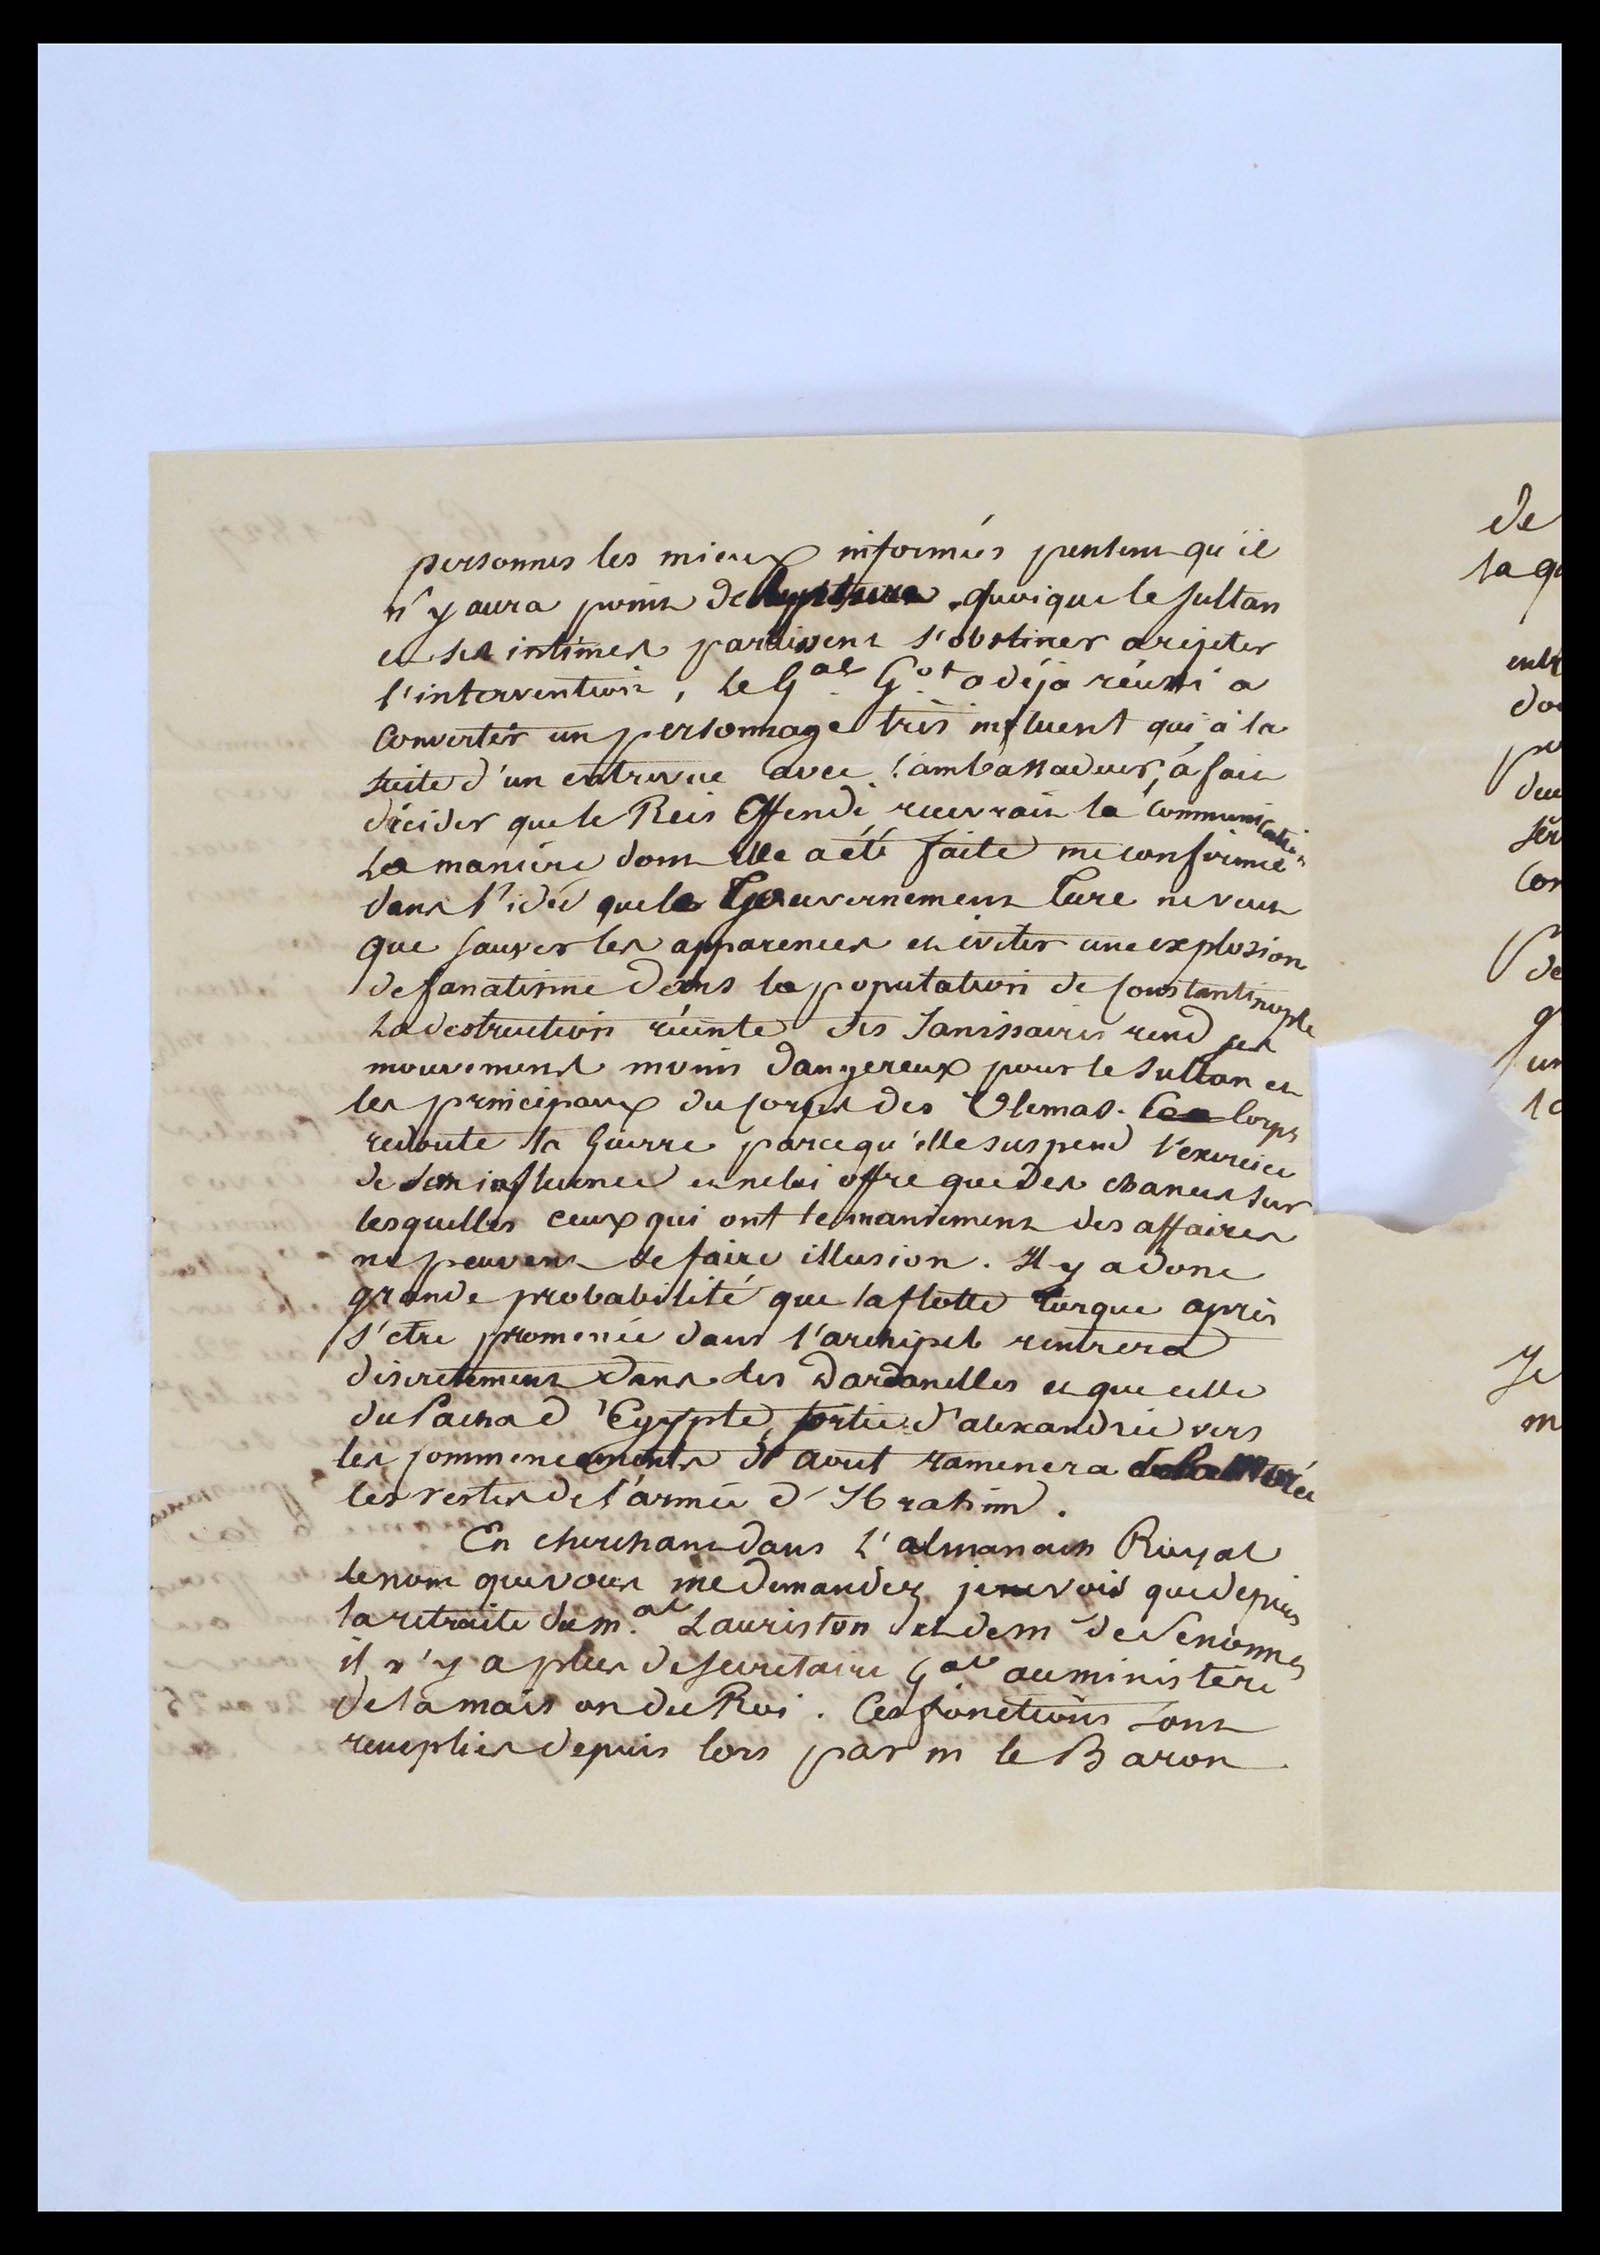 personnes les mieux informées pensent qu'il
n'y aura point de rupture. quoique le Sultan
et ses intimes paraissent s'obstiner a rejeter
l'intervention, le Gal Got a déjà réussi a
convertir un personnage très influent qui à la
suite d'un entrevue avec l'ambassadeur, a fait
décider que le Reis Effendi recevrait la communication
La manière dont elle a été faite me confirme
dans l'idée que le Gouvernement Turc ne veut
que sauver les apparences et éviter une explosion
de fanatisme dans la population de Constantinople
La destruction récente des Janissaires rend ses
mouvements moins dangereux pour le Sultan et
les principaux du corps des Ulemas. Ce Corps
redoute la Guerre parcequ'elle suspend l'exercice
de son influence et ne lui offre que des chances sur
lesquelles ceux qui ont le maniement des affaires
ne peuvent se faire illusion. Il y a donc
grande probabilité que la flotte turque après
s'etre promenée dans l'archipel rentrera
discretement dans les Dardanelles et que celle
du Pacha d'Egypte, sortie d'alexandrie vers
les commencements d'aout ramenera de la Morée
les restes de l'armée d'Ibrahim.
En cherchant dans l'almanach Royal
le nom que vous me demandez je vois que depuis
la retraite du m.al Lauriston et de m de Senonnes
il n'y a plus de secretaire Gal au ministère
de la maison du Roi. Ces fonctions sont
remplies depuis lors par m le Baron
de
la
Je